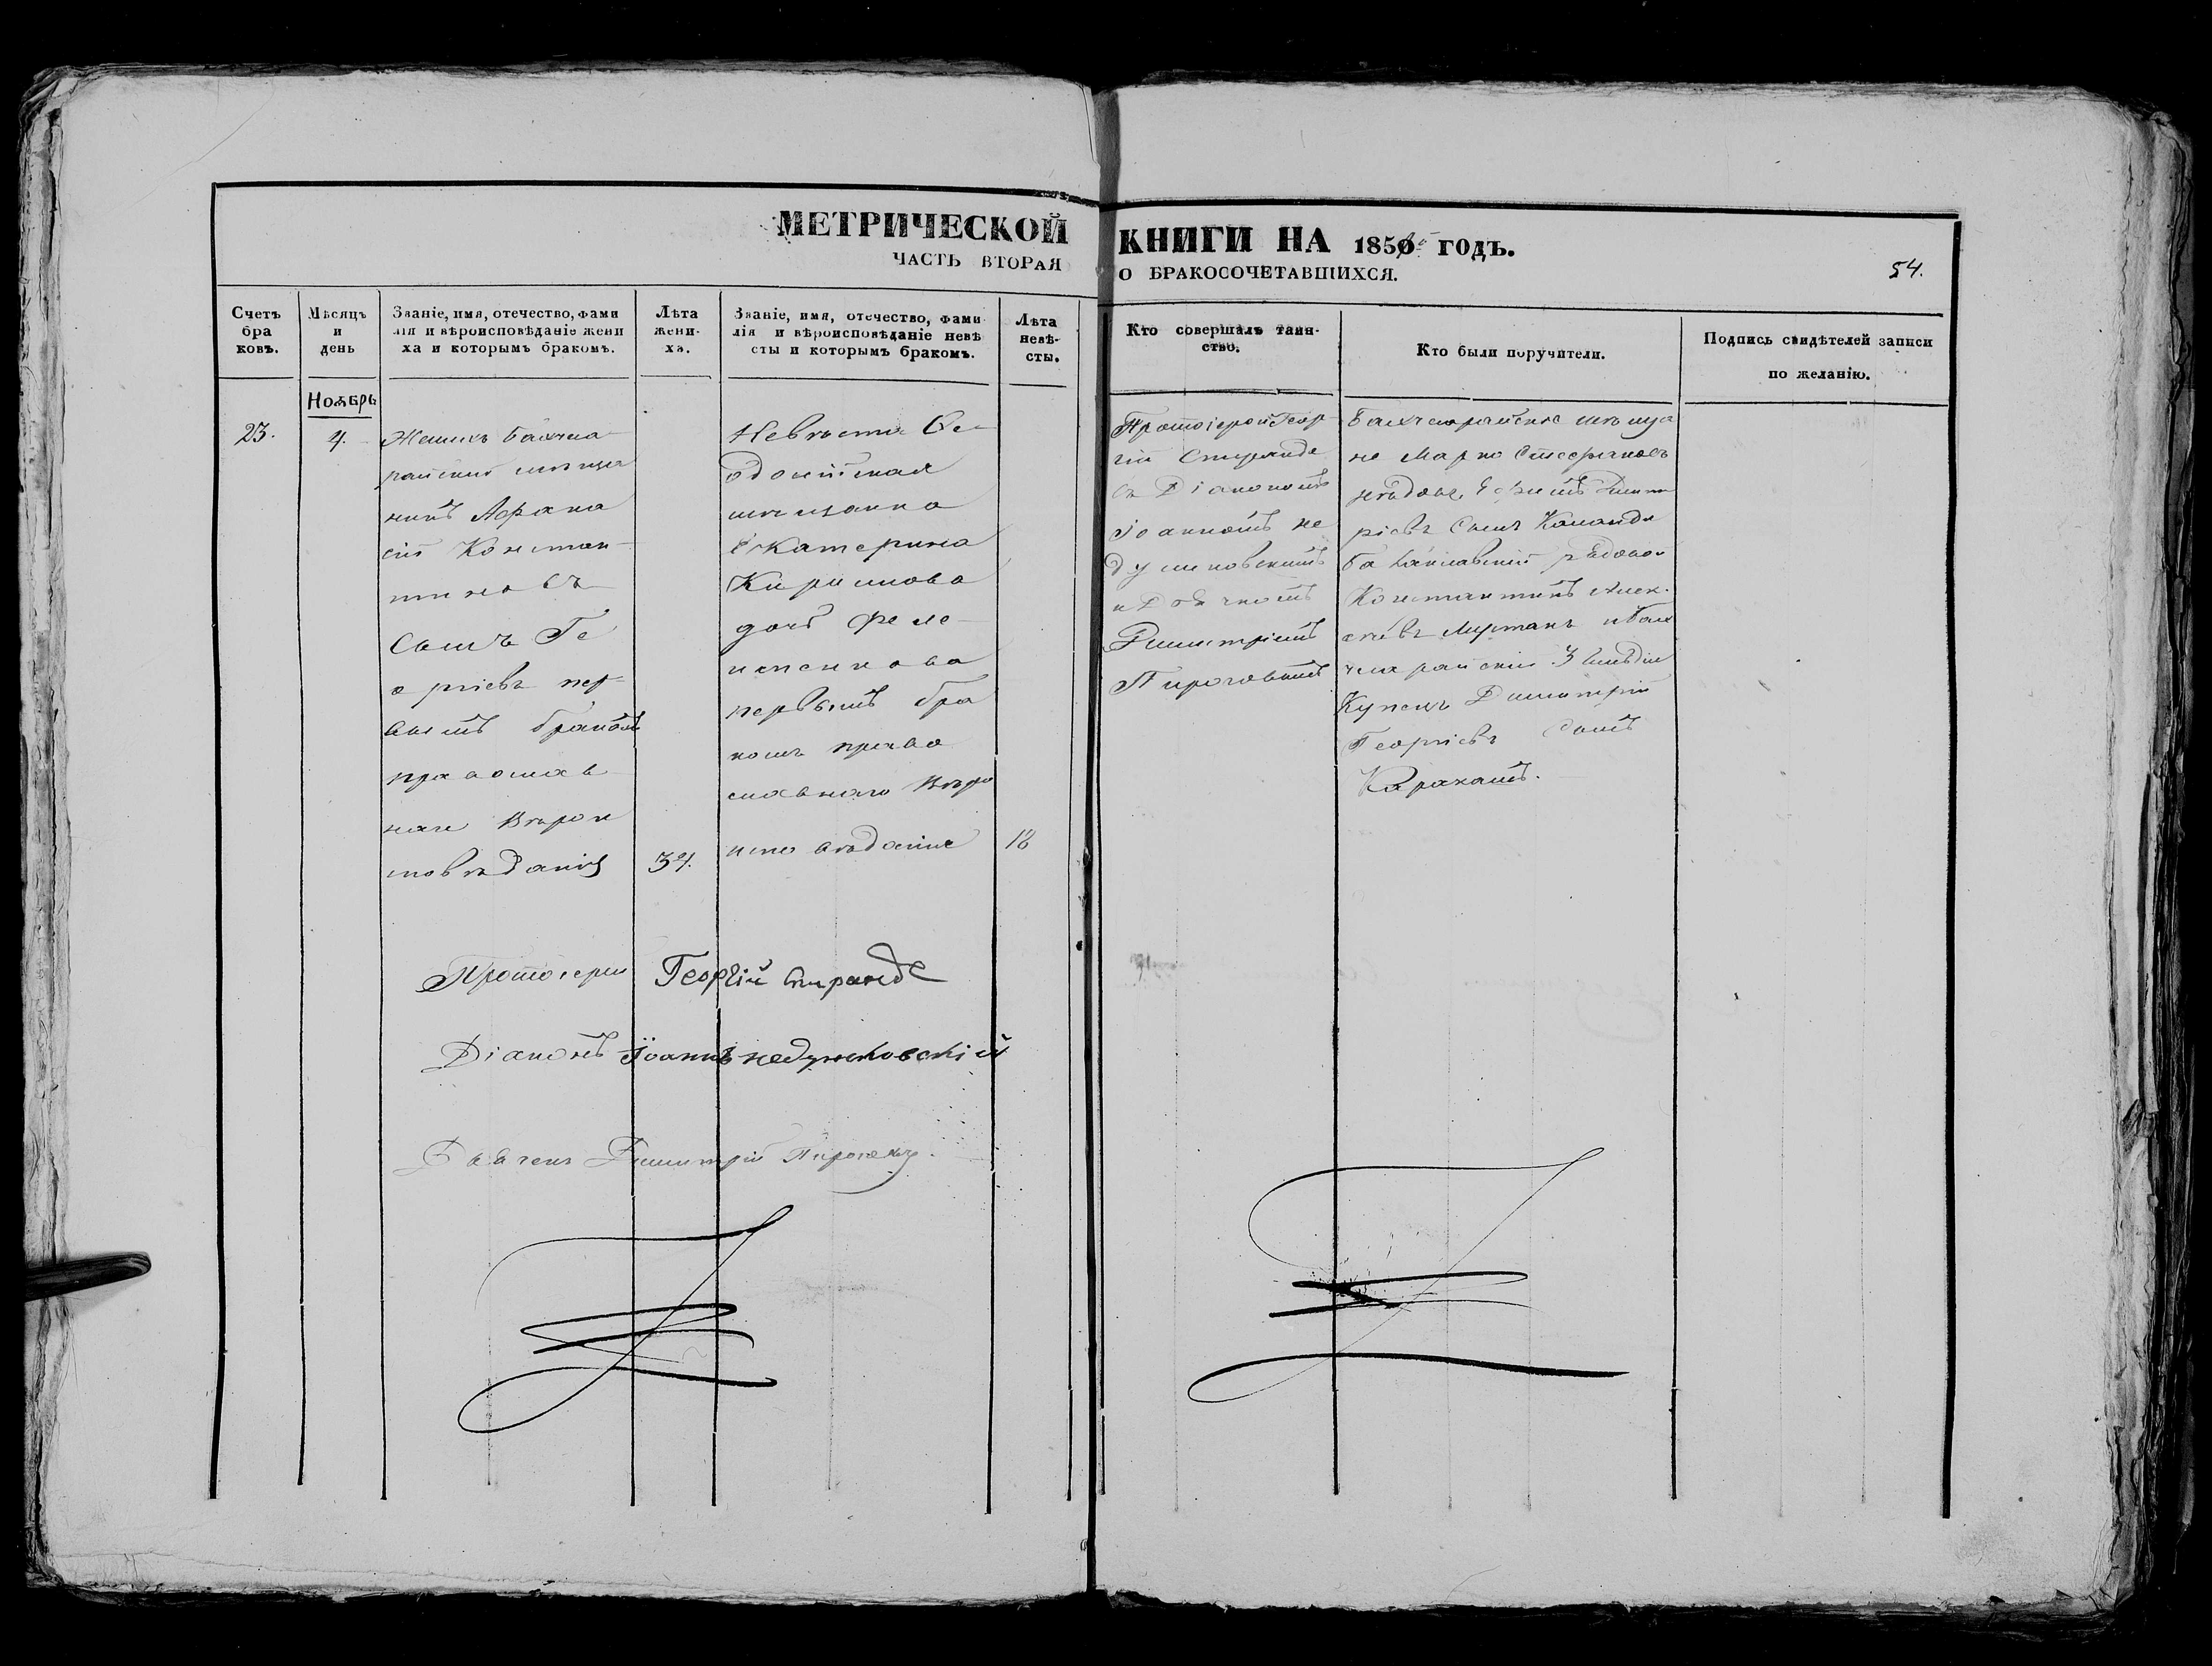 МЕТРИЧЕСКОЙ КНИГИ НА 1856 ГОДЪ.
ЧАСТЬ ВТОРАЯ О БРАКОСОЧЕТАВШИХСЯ.
54.
Счетъ
бра
ковъ.
Мѣсяцъ
и
день
Званіе, имя, отечество, фами
лія и вѣроисповѣданіе жени
ха и которымъ бракомъ.
Лѣта
жени-
ха.
Званіе, имя, отечество, фами
лія и вѣроисповѣданіе невѣ
сты и которымъ бракомъ.
Лѣта
невѣ-
сты.
Кто совершалъ таин-
ство.
Кто были поручители.
Подпись свидѣтелей записи
по желанію.
Ноябрь
23.
4.
Женихъ Бахчиса
райский мѣща
нинъ Афана
сій Констан
тиновъ
Сынъ Ге
оргіевъ пер
вымъ бракомъ
православ
наго Вѣрои
сповѣданія
34.
Невѣста Ѳе
одосійская
мѣщанка
Екатерина
Кирилова
дочь
первымъ бра
комъ право
славнаго Вѣро
исповѣданія
18
Протоіерей Геор
гій Спиранде
съ Діакономъ
Іоанномъ Не
думовскимъ
и Дьячкомъ
Димитріемъ
Пироговымъ
Бахчисарайские мѣща
не Марко Стефановъ
Ефимъ Димит
ріевъ Сынъ
Балаклавский рядовой
Константинъ Алек
сѣевъ и Бах
чисарайский 3 Гильдіи
Купецъ Димитрій
Георгіевъ Сынъ
Каракашъ.
Протоіерей Георгій Спиранде
Діаконъ Іоаннъ Недумовскій
Дьячекъ Димитрій